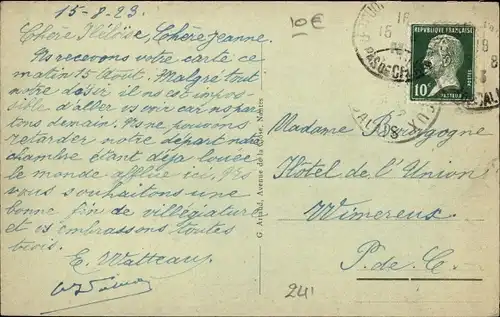 15-8-23.
Chère Héloïse, Chère Jeanne.
Ns recevons votre carte ce
matin 15 Août. Malgré tout
notre désir il ns est impos-
sible d'aller vs voir car ns par-
tons demain. Ns ne pouvons
retarder notre départ notre
chambre étant déjà louée
le monde afflue ici. Ns
vous souhaitons une
bonne fin de villégiature
et vs embrassons toutes
trois.
E. Watteau
G. Artaud, Avenue de la Close, Nantes
10€
RÉPUBLIQUE FRANÇAISE
10c
PASTEUR
POSTES
PAS DE CALAIS
Madame Bourgogne
Hôtel de l'Union
Wimereux
P. de C.
24'